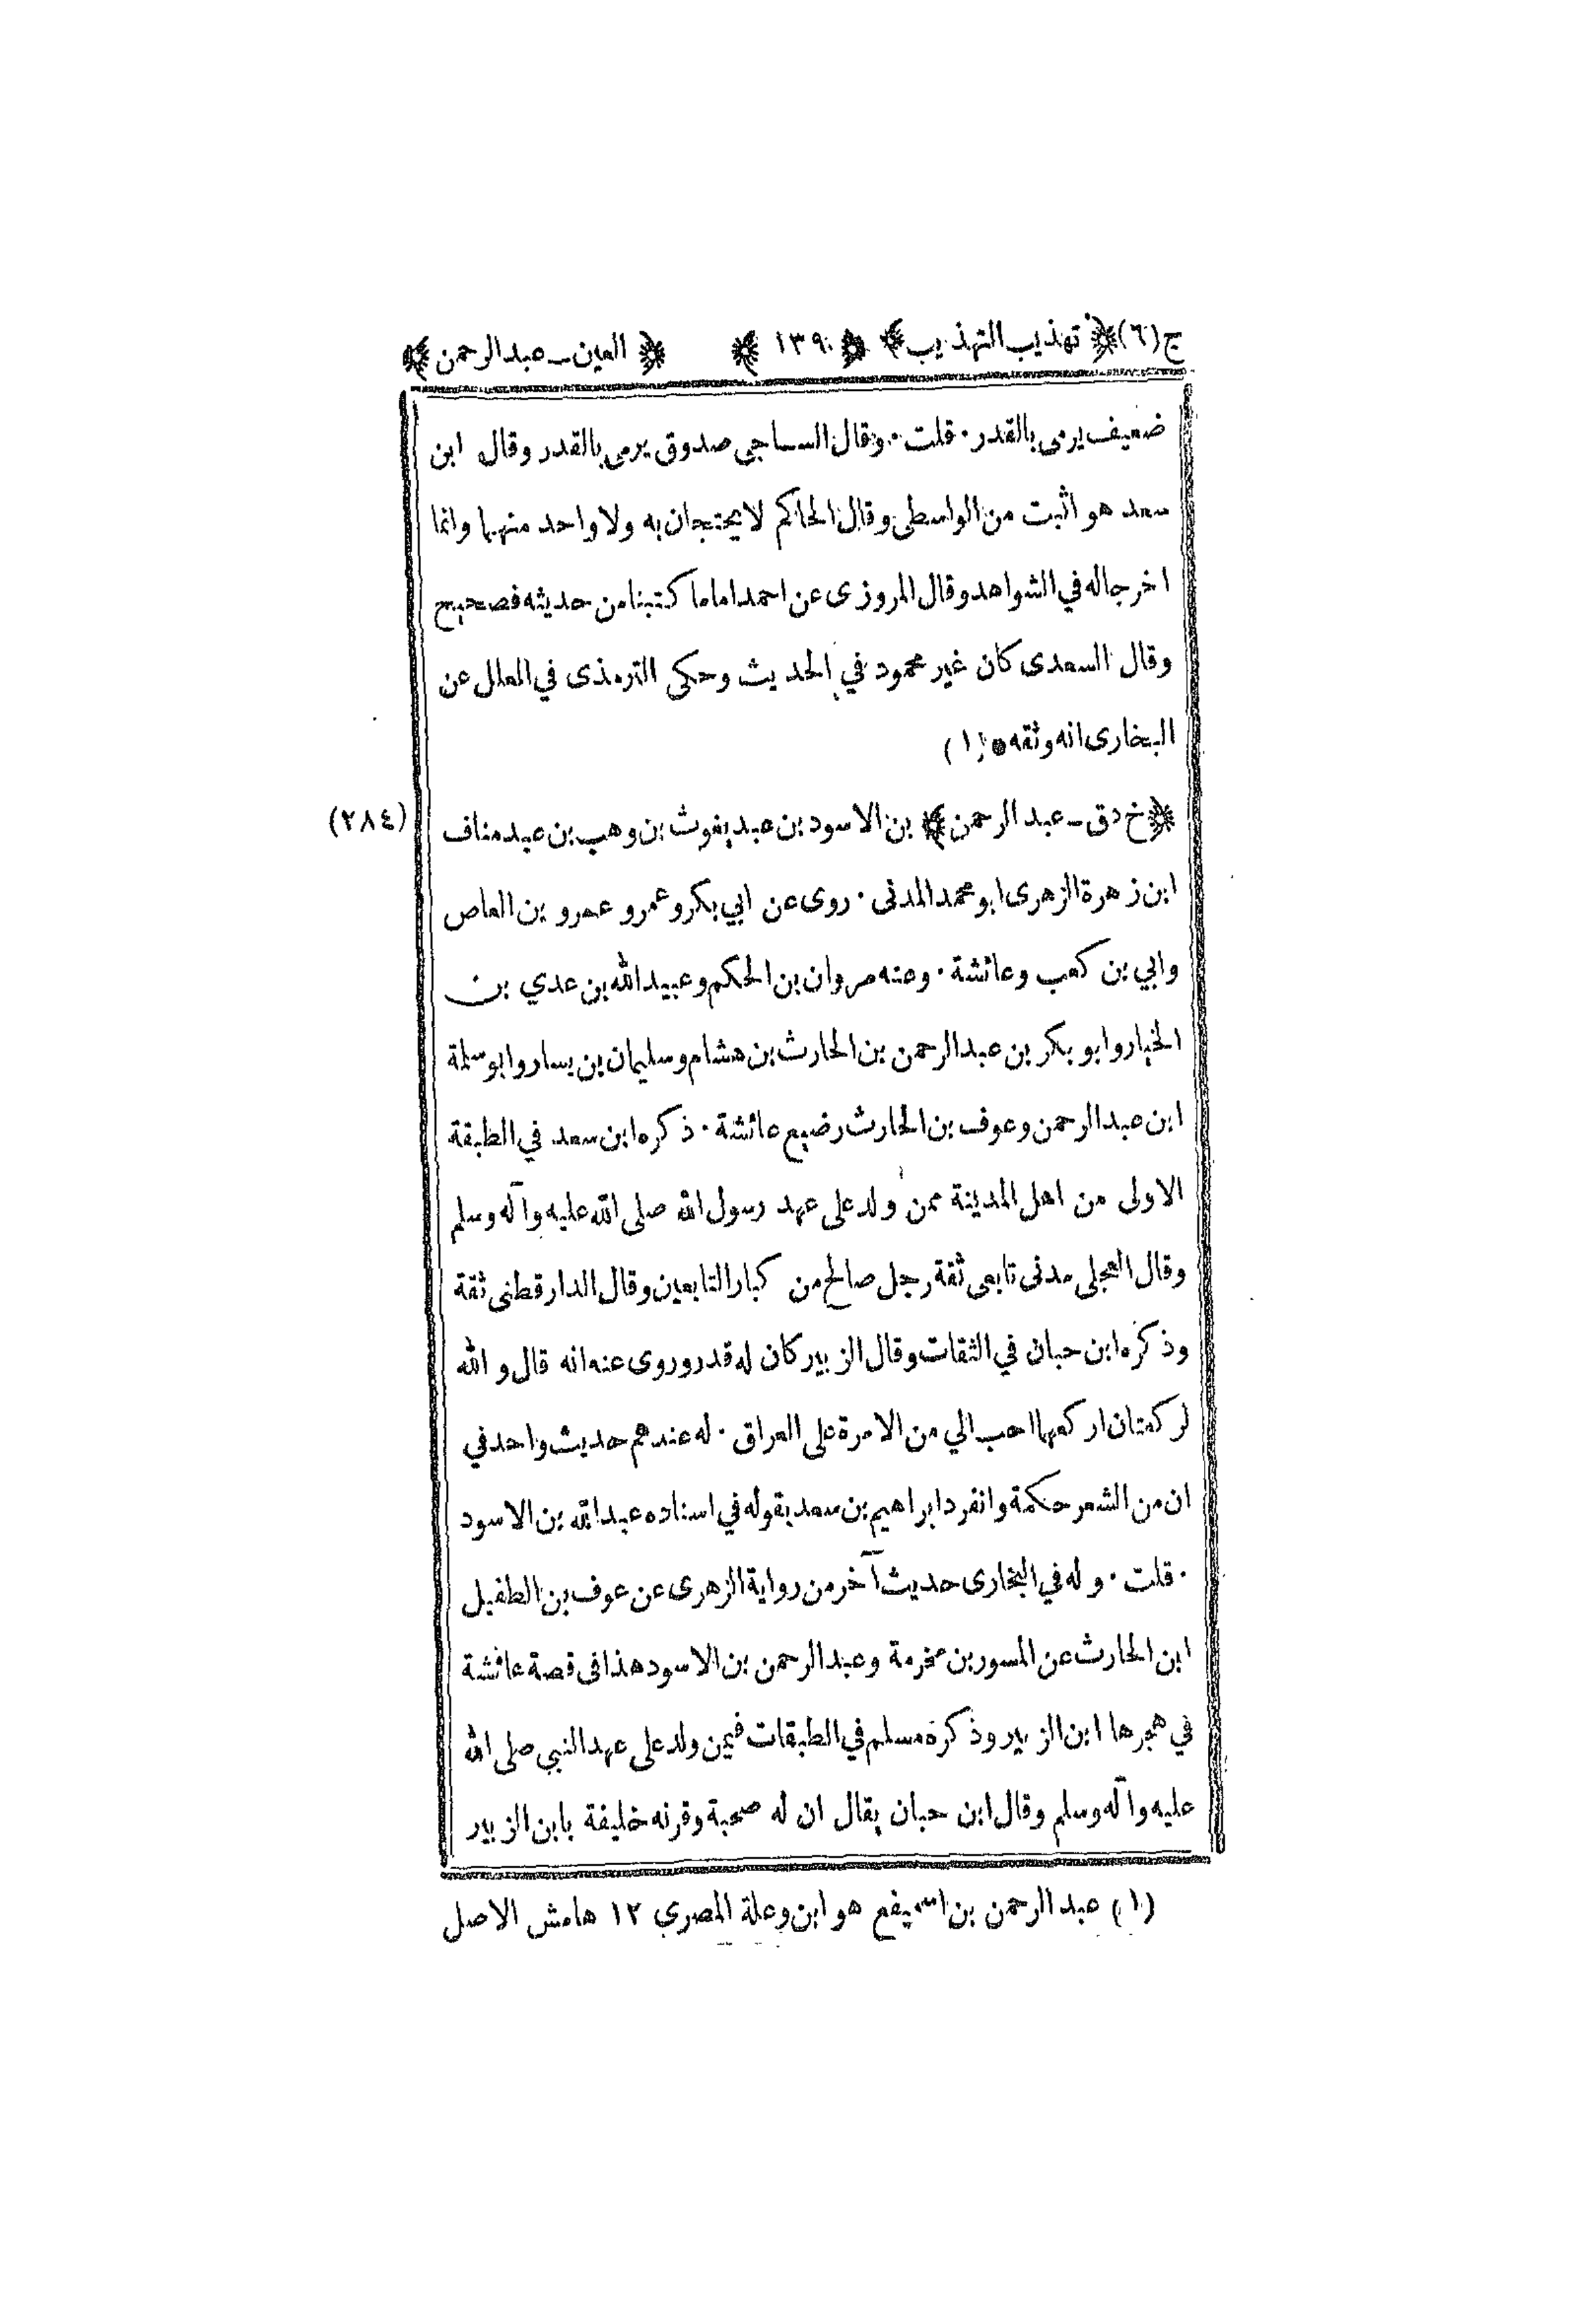 ج(٦) ﴿تهذيب التهذيب﴾ ﴿١٣٩﴾ ﴿العين ـ عبد الرحمن﴾
ضعيف يرمى بالقدر · قلت · وقال الساجي صدوق يرمى بالقدر وقال ابن
سعد هو اثبت من الواسطى وقال الحاكم لا يحتجان به ولا واحد منهما وانما
اخرجا له في الشواهد وقال المروزى عن احمد اما ما كتبنا من حديثه فصحيح
وقال السعدى كان غير محمود في الحديث وحكى الترمذى في العلل عن
البخارى انه وثقه * (١)
﴿خ د ق ـ عبد الرحمن﴾ بن الاسود بن عبد يغوث بن وهب بن عبد مناف (٢٨٤)
ابن زهرة الزهرى ابو محمد المدنى · روى عن ابي بكر وعمر و عمرو بن العاص
وابي بن كعب وعائشة · وعنه مروان بن الحكم وعبيد الله بن عدي بن
الخيار وابو بكر بن عبد الرحمن بن الحارث بن هشام وسليمان بن يسار وابو سلمة
ابن عبد الرحمن وعوف بن الحارث رضيع عائشة · ذكره ابن سعد في الطبقة
الاولى من اهل المدينة ممن ولد على عهد رسول الله صلى الله عليه وآله وسلم
وقال العجلى مدنى تابعى ثقة رجل صالح من كبار التابعين وقال الدار قطنى ثقة
وذكره ابن حبان في الثقات وقال الزبير كان له قدر وروى عنه انه قال و الله
لركعتان اركعهما احب الي من الامرة على العراق · له عندهم حديث واحد في
ان من الشعر حكمة وانفرد ابراهيم بن سعد بقوله في اسناده عبد الله بن الاسود
· قلت · وله في البخارى حديث آخر من رواية الزهرى عن عوف بن الطفيل
ابن الحارث عن المسور بن مخرمة وعبد الرحمن بن الاسود هذا فى قصة عائشة
في هجرها ابن الزبير وذكره مسلم في الطبقات فيمن ولد على عهد النبي صلى الله
عليه وآله وسلم وقال ابن حبان يقال ان له صحبة وقرنه خليفة بابن الزبير
(١) عبد الرحمن بن اسميفع هو ابن وعلة المصري ١٢ هامش الاصل